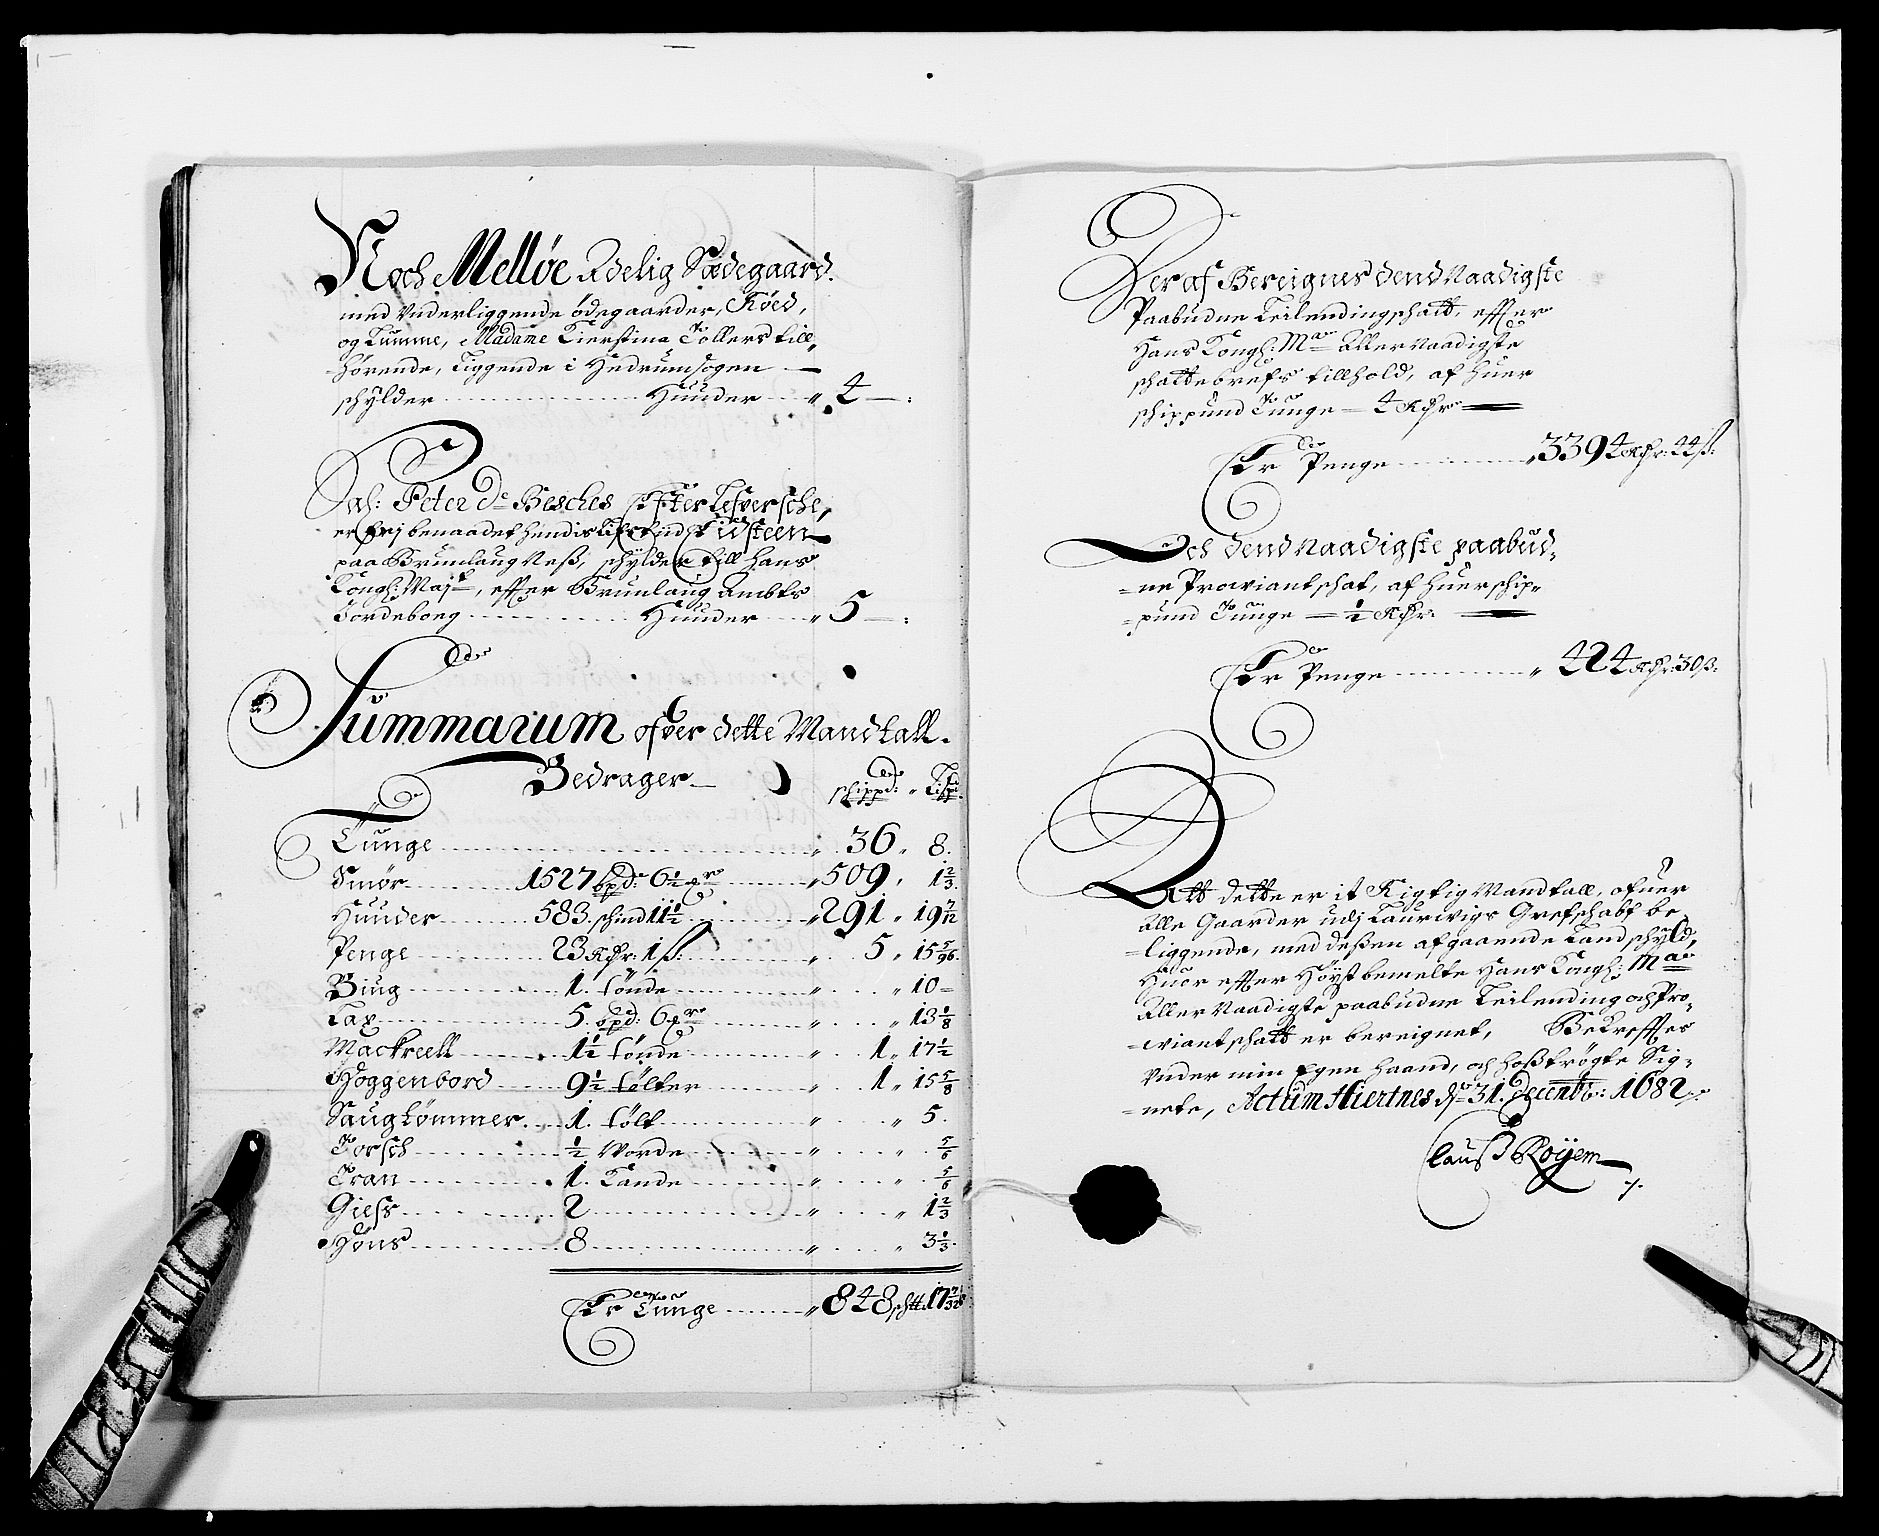 Noch Melløe Adelig Sædegaard.
med Underliggende ødegaarder, Røed,
og Lumme, Madame Kierstina Tollers till,,
-hørende, Liggende i Hedrumsogen —
schylder ........ Huuder ... „ 4 — :
Sal: Peter de Besches Efterlefversche,
er frj benaadet hendis Lifs tid, Tidsteen
paa Brunlaug Neß, schylder till Hans
Kongl: Maj:t, effter Brunlaug Ambts
Jordebong ........ Huuder ... „ 5 — :
Summarum ofver dette Mandtall.
Bedrager — schippd: „ Lispd:
Tunge ........ „ 36 „ 8.
Smør ........ 1527 bpd: 6½ mr ........ „ 509 „ 1⅔.
Huuder ........ 583. schind 11½ ........ „ 291 „ 19 7/12
Penge ........ 23 Rdr: 1 ß: ........ „ 5 „ 15 5/96.
Biug ........ 1. tønde ........ „ .... „ 10 –
Lax ........ 5. bpd: 6 mr ........ „ .... „ 13⅛
Mackreell ........ 1½ tønde ........ „ 1 „ 17½
Hoggenbord ........ 9½ tølter ........ „ 1 „ 15⅝
Saugtømmer ... 1. tølt ........ „ .... „ 5.
Torsch ........ ½ Vorde ........ „ .... „ ⅚
Tran ........ 1. Kande ........ „ .... „ ⅚
Giess ........ 2 ........ „ .... „ 1⅔
Høns ........ 8 ........ „ .... „ 3⅓.
Er Tunge ........ „ 848 schtt: 17
Deraf Bereignes dend Naadigste
Paabudne Leilendingschatt, effter
Hans Kongl: Mas Aller Naadigste
schattebrefs tillhold, af huer
schippund Tunge — 4 Rdr —
Er Penge ........ „ 3394 Rdr: 44 ß:
Och dend Naadigste paabud-
-ne Proviantschat, af huer schip-
-pund Tunge — ½ Rdr: —
Er Penge ........ „ 424 Rdr: 30 ß:
Att dette er it Rigtig Mandtall, ofuer
alle Gaarder udj Laurwigs Grefschabf be
-liggende, med deßen afgaaende Landschyld,
Huor effter Høystbemelte Hans Kongl: Mas
Aller Naadigste paabudne Leilending och Pro-
-viantschatt er bereignet, Bekreffter
Under min Egen haand, och hoßtrøgte Sig-
-nete, Actum Hiertnes d: 31. Decembr: 1682
Clauß Røyem